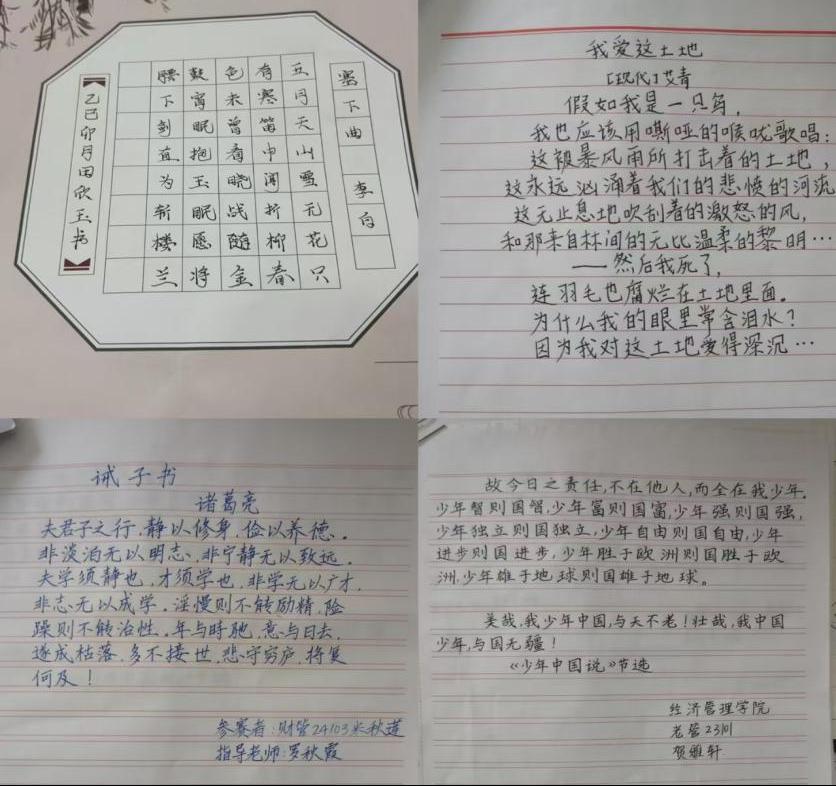 塞下曲 李白
五月天山雪无花只
有寒笛中闻折柳春
色未曾看晓战随金
鼓宵眠抱玉眠愿将
腰下剑直为斩楼兰
乙巳卯月田欣玉书
我爱这土地
[现代]艾青
假如我是一只鸟,
我也应该用嘶哑的喉咙歌唱:
这被暴风雨所打击着的土地,
这永远汹涌着我们的悲愤的河流
这无止息地吹刮着的激怒的风,
和那来自林间的无比温柔的黎明…
——然后我死了,
连羽毛也腐烂在土地里面。
为什么我的眼里常含泪水?
因为我对这土地爱得深沉…
诫子书
诸葛亮
夫君子之行,静以修身,俭以养德。
非淡泊无以明志,非宁静无以致远。
夫学须静也,才须学也,非学无以广才,
非志无以成学。淫慢则不能励精,险
躁则不能治性。年与时驰,意与日去,
遂成枯落,多不接世,悲守穷庐,将复
何及!
参赛者:财管24103米秋莲
指导老师:罗秋霞
故今日之责任,不在他人,而全在我少年。
少年智则国智,少年富则国富,少年强则国强,
少年独立则国独立,少年自由则国自由,少年
进步则国进步,少年胜于欧洲则国胜于欧
洲,少年雄于地球则国雄于地球。
美哉,我少年中国,与天不老!壮哉,我中国
少年,与国无疆!
《少年中国说》节选
经济管理学院
老管23101
贺雅轩